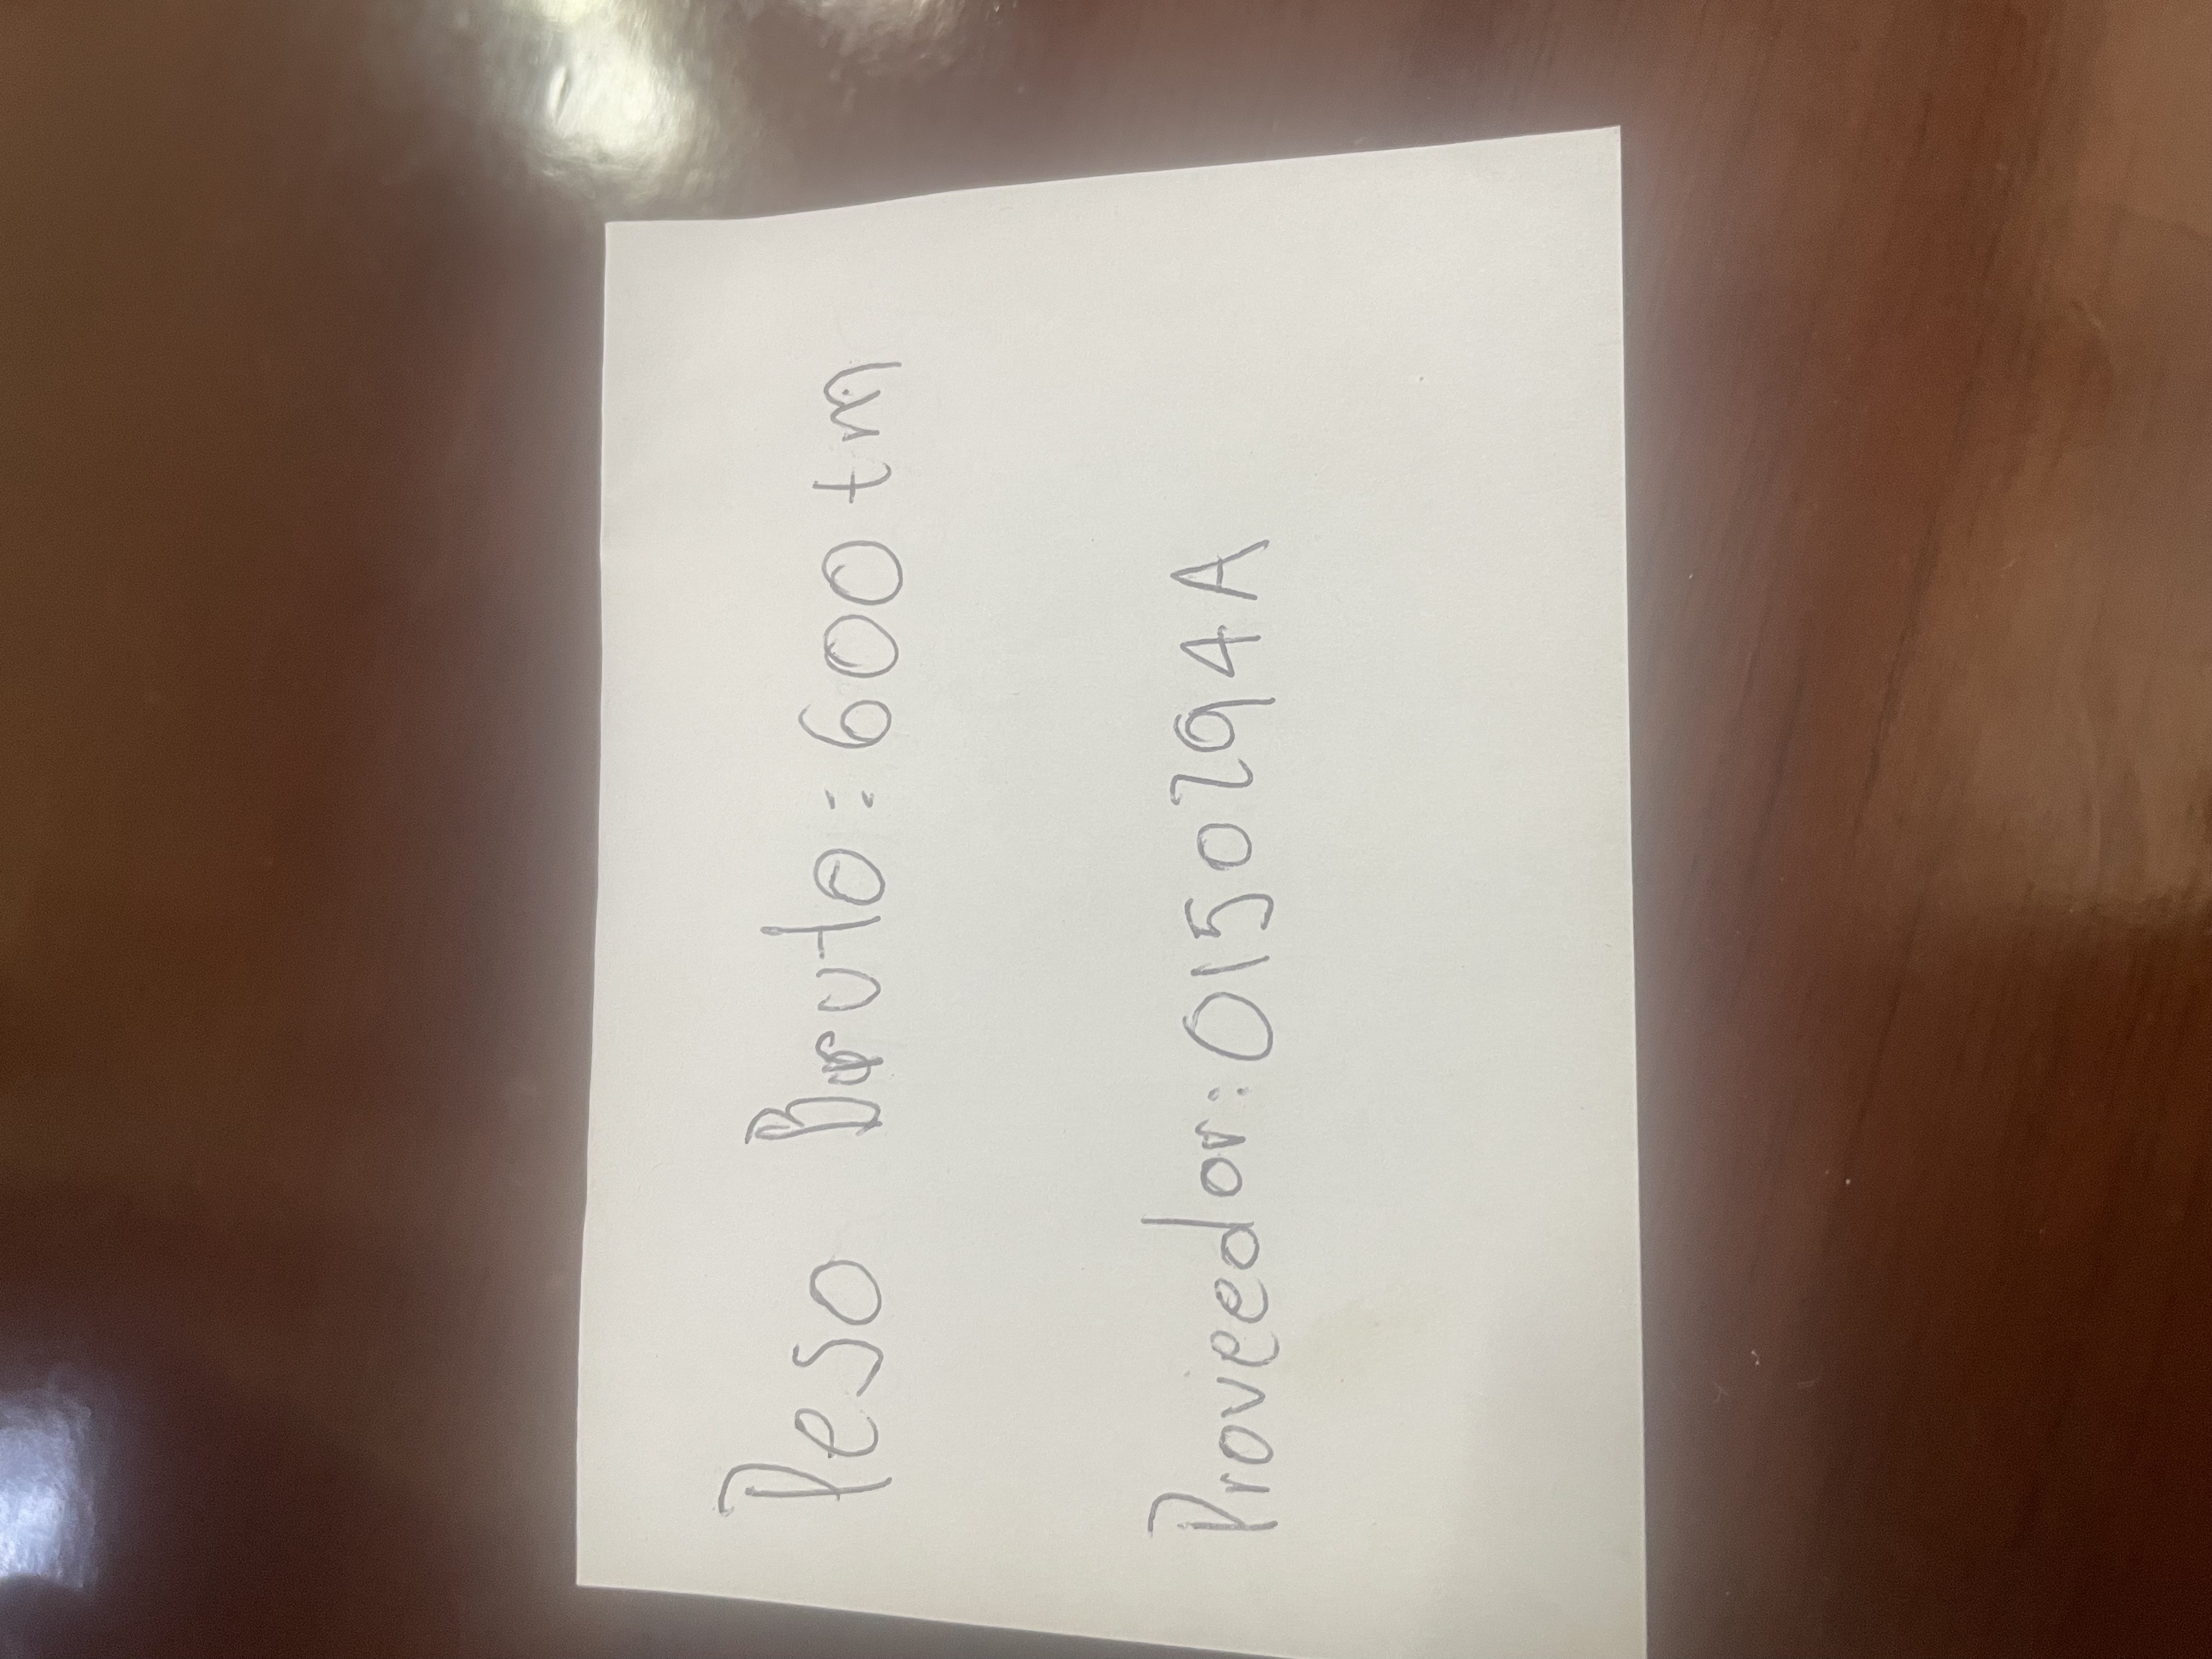 Peso Bruto: 600 tm
Proveedor: 0150294A